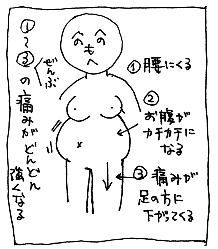 ①腰にくる
②
お腹が
カチカチに
なる
③痛みが
足の方に
下がってくる
①~③の痛みがどんどん
ぜんぶ
強くなる
へのへのもへ